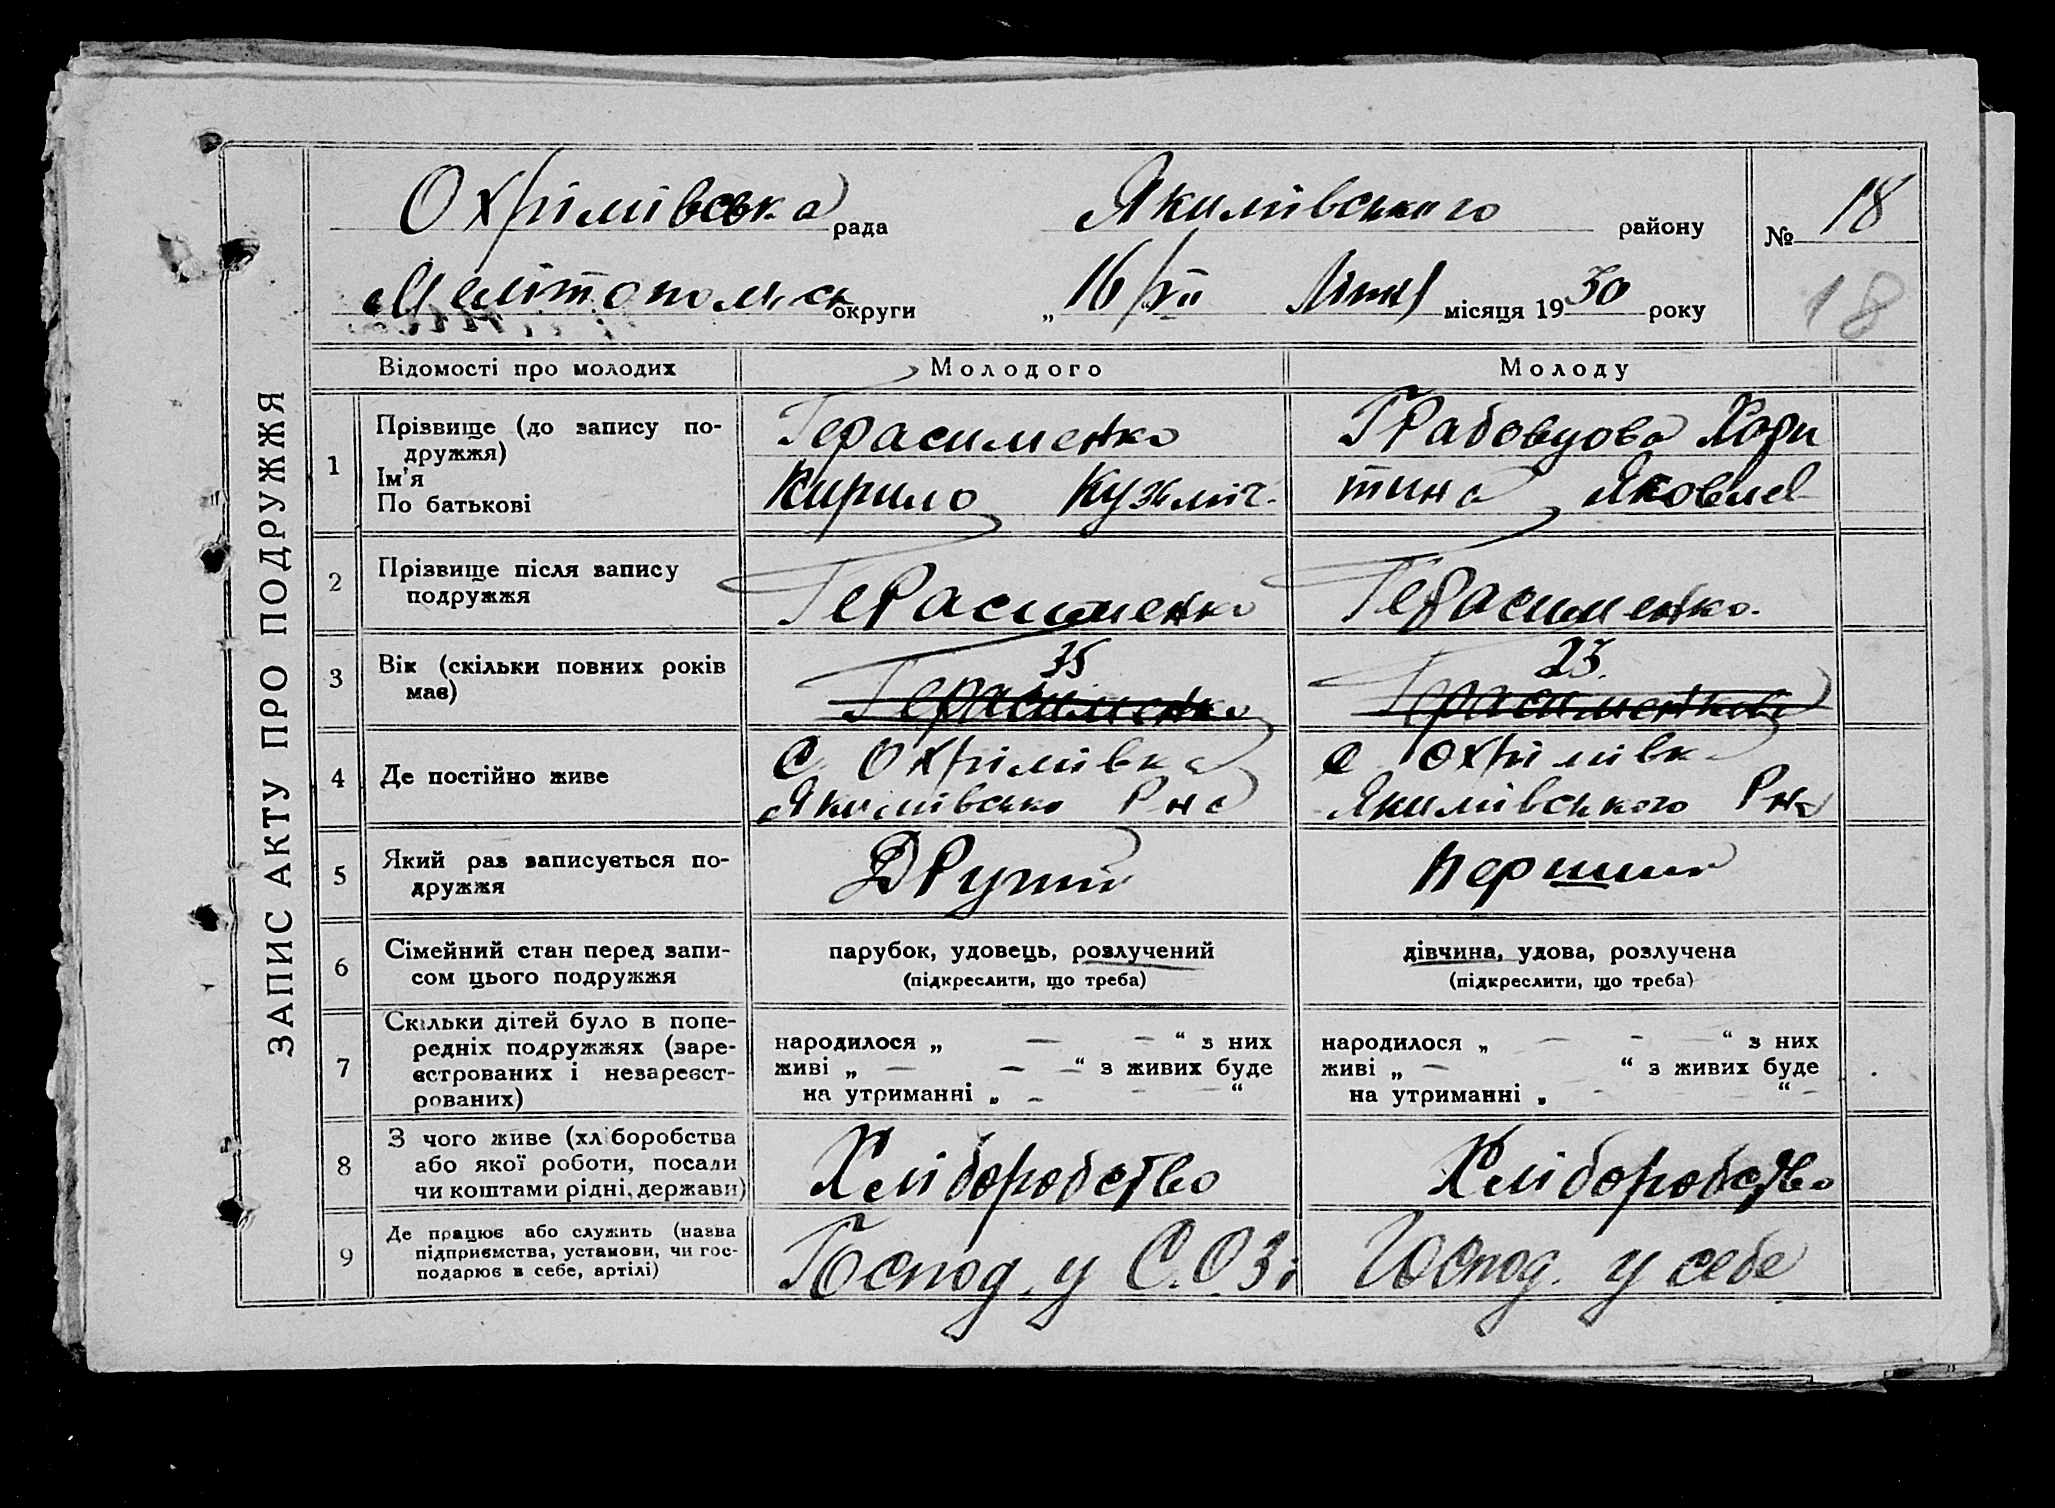 ЗАПИС АКТУ ПРО ПОДРУЖЖЯ
Охрімівська рада Якимівського району № 18
Мелітопольск округи „ 16/VII Липня місяця 1930 року 18
Відомості про молодих Молодого Молоду
1 Прізвище (до запису подружжя) Герасименко Грабовцова Хари
Ім'я
По батькові Кирило Кузміч тина Яковлев
2 Прізвище після запису Герасименко Герасименко
подружжя
3 Вік (скільки повних років 35 23.
має) Герасименко Герасименкова
4 Де постійно живе С. Охрімівка с Охрімівка
Якимівсько Рна Якимівського Рна
5 Який раз записується по- Другий Перший
дружжя
6 Сімейний стан перед запи- парубок, удовець, розлучений дівчина, удова, розлучена
сом цього подружжя (підкреслити, що треба) (підкреслити, що треба)
7 Скільки дітей було в попе-
редніх подружжях (заре- народилося „ — — “ з них народилося „ — - — “ з них
єстрованих і незареєст- живі „ — — — “ з живих буде живі „ — “ з живих буде
рованих) на утриманні „ - — — “ на утриманні „ - - “ -
8 З чого живе (хліборобства
або якої роботи, посади Хліборобство Хліборобство
чи коштами рідні, держави)
9 Де працює або служить (назва
підприємства, установи, чи гос- Господ у С.О.Зі Господ. у себе
подарює в себе, артілі)